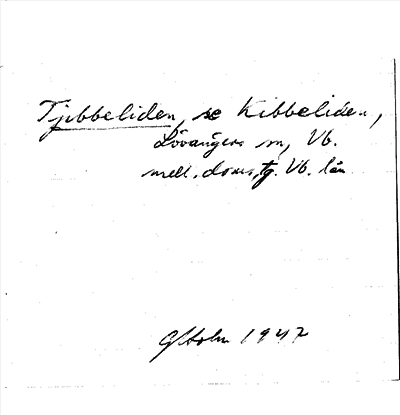 Tjibbeliden, se Kibbeliden,
Lövångers sn, Vb.
mell. doms,tg. Vb. län
GHolm 1947